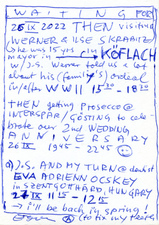 WAITING FOR
26 IX 2022 THEN VISITING
WERNER & ILSE SKRAATZ
(he was 15 yrs
mayor in KÖFLACH
w/ JS. Werner told us a lot
about his (family's) ordeal
in/after WWII 15- – 18 20
THEN getting Prosecco @
INTERSPAR/GÖSTING to cele
brate our 2ND WEDDING
ANNIVERSARY
26 IX 1945 – 2245
a) JS. AND MY TURN @ dentist
EVA ADRIENN OCSKEY
in SZENTGOTTHÁRD, HUNGARY
27 IX 11 15 – 12 15
→ i'll be back in spring!
(to fix my teeth)